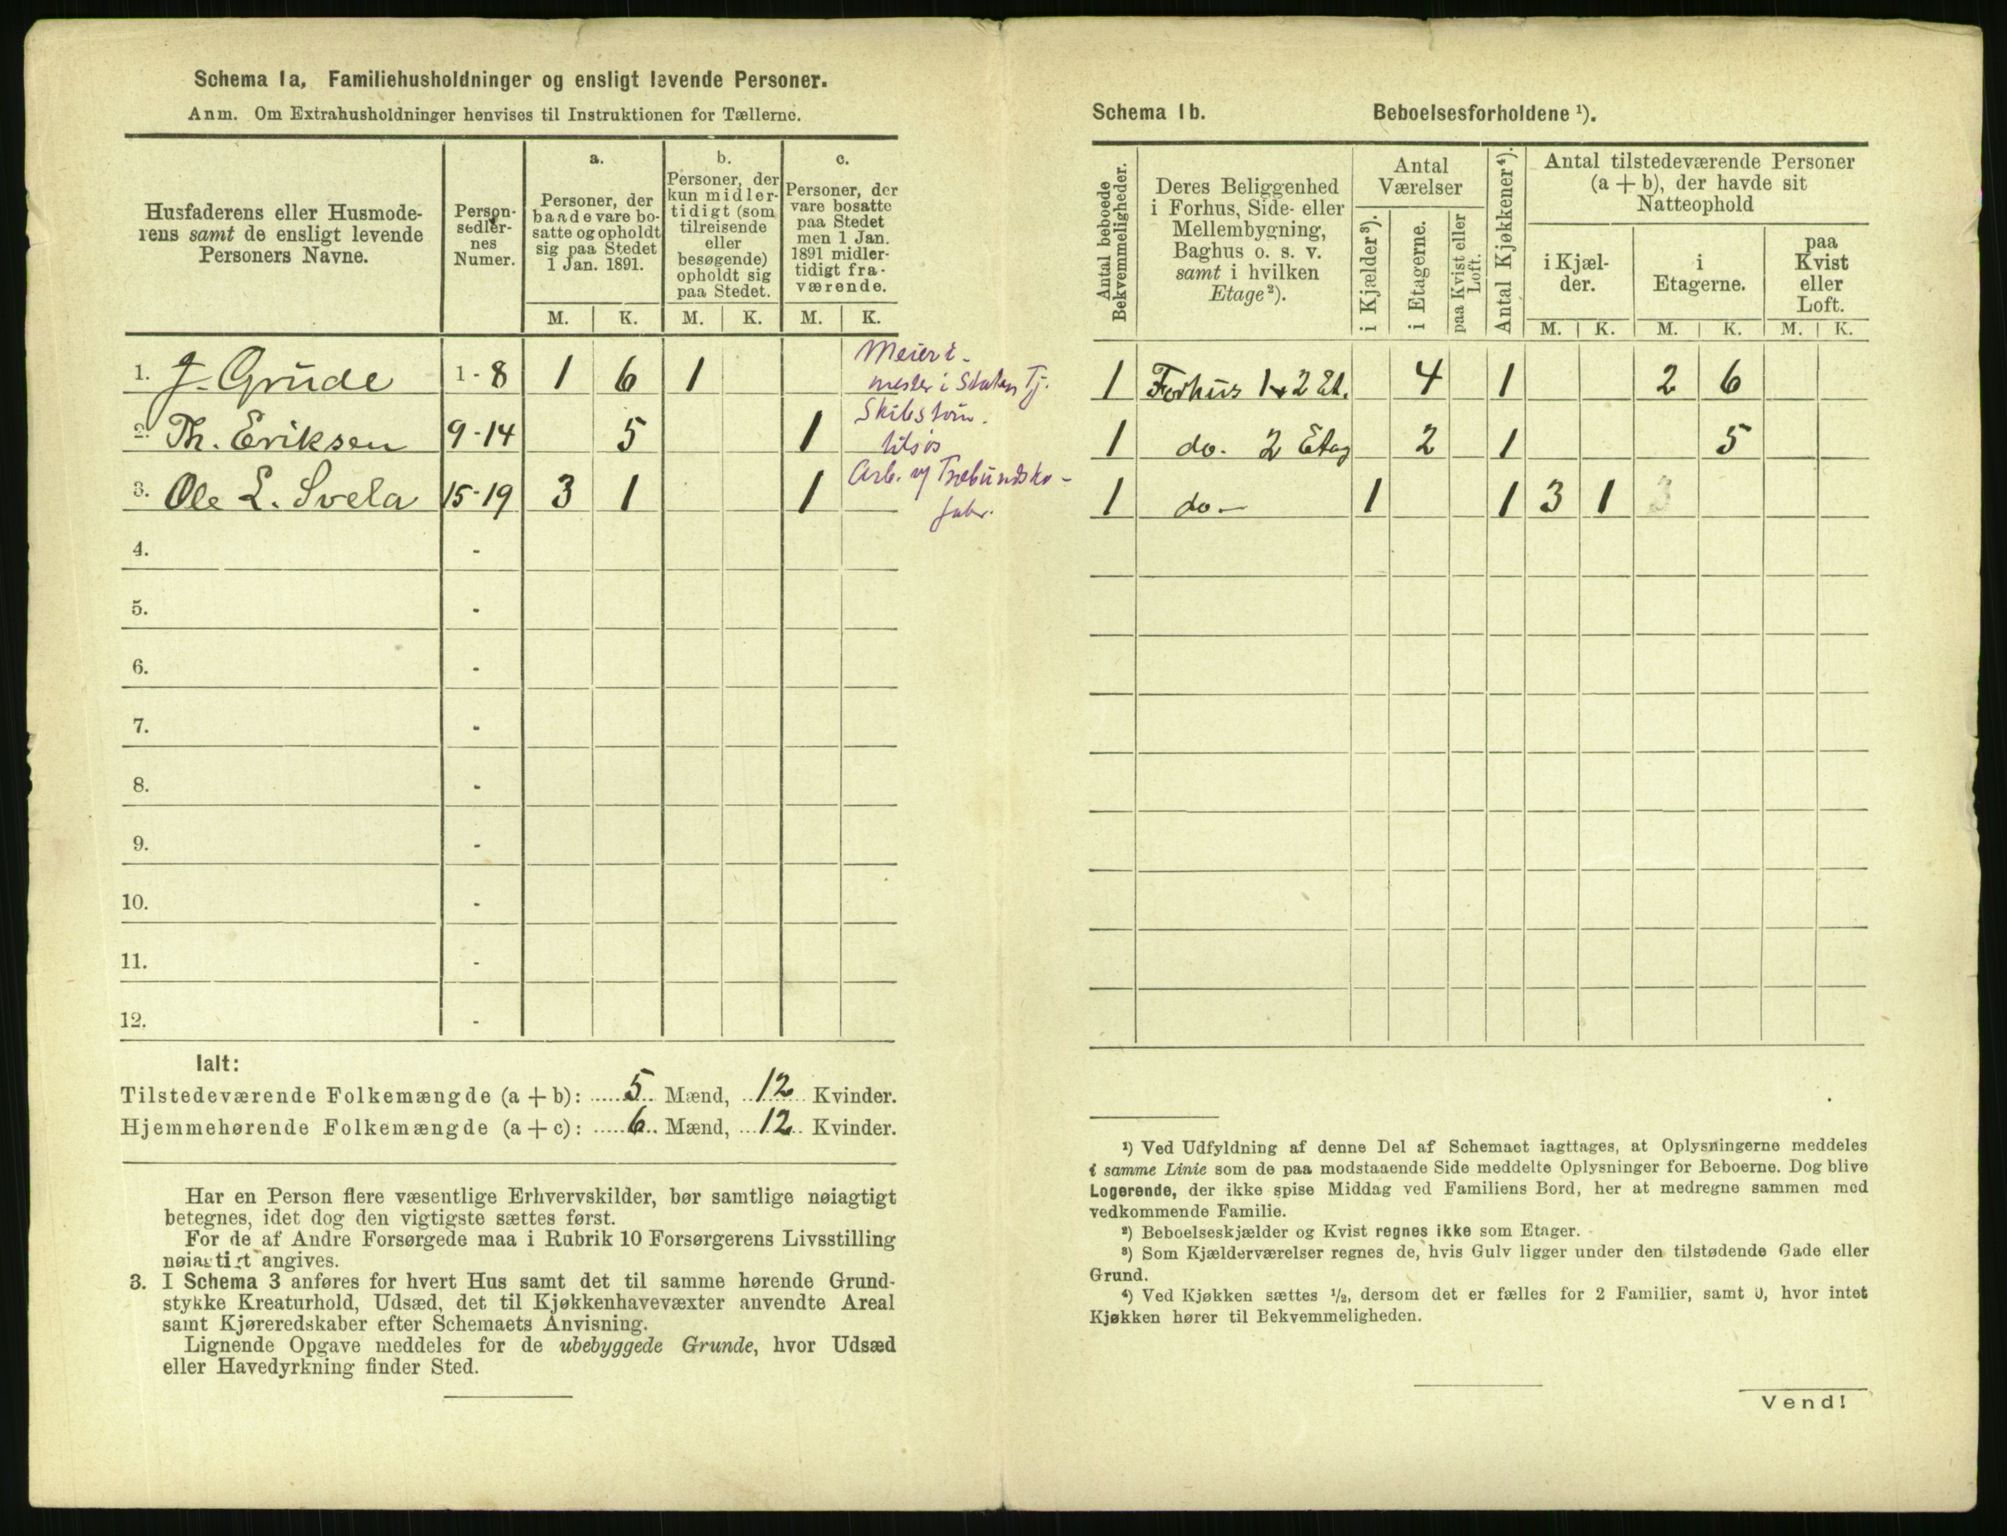 Schema 1a. Familiehusholdninger og ensligt levende Personer.
Anm. Om Extrahusholdninger henvises til Instruktionen for Tællerne.
Husfaderens eller Husmode-
rens samt de ensligt levende
Personers Navne.
Person-
sedler-
nes
Numer.
a.
Personer, der
baade vare bo-
satte og opholdt
sig paa Stedet
1 Jan. 1891.
b.
Personer, der
kun midler-
tidigt (som
tilreisende
eller
besøgende)
opholdt sig
paa Stedet.
c.
Personer, der
vare bosatte
paa Stedet
men 1 Jan.
1891 midler-
tidigt fra-
værende.
M. K. M. K. M. K.
1. J. Grude 1-8 1 6 1 Meieri-
mester i Staten Tj.
2. Th. Eriksen 9-14 5 1 Skibstøm.
tilsjøs
3. Ole L. Svela 15-19 3 1 1 Arb. v/ Træbundsko-
fabr.
4. -
5. -
6. -
7. -
8. -
9. -
10. -
11. -
12. -
Ialt:
Tilstedeværende Folkemængde (a + b): 5 Mænd, 12 Kvinder.
Hjemmehørende Folkemængde (a + c): 6 Mænd, 12 Kvinder.
Har en Person flere væsentlige Erhvervskilder, bør samtlige nøiagtigt
betegnes, idet dog den vigtigste sættes først.
For de af Andre Forsørgede maa i Rubrik 10 Forsørgerens Livsstilling
nøiagtigt angives.
3. I Schema 3 anføres for hvert Hus samt det til samme hørende Grund-
stykke Kreaturhold, Udsæd, det til Kjøkkenhavevæxter anvendte Areal
samt Kjøreredskaber efter Schemaets Anvisning.
Lignende Opgave meddeles for de ubebyggede Grunde, hvor Udsæd
eller Havedyrkning finder Sted.
Schema 1b. Beboelsesforholdene ¹).
Antal beboede
Bekvemmeligheder.
Deres Beliggenhed
i Forhus, Side- eller
Mellembygning,
Baghus o. s. v.
samt i hvilken
Etage²).
Antal
Værelser
i Kjælder³).
i Etagerne.
paa Kvist eller
Loft.
Antal Kjøkkener⁴).
Antal tilstedeværende Personer
(a + b), der havde sit
Natteophold
i Kjæl-
der.
i
Etagerne.
paa
Kvist
eller
Loft.
M. K. M. K. M. K.
1 Forhus 1 & 2 Et. 4 1 2 6
1 do. 2 Etag 2 1 5
1 do- 1 1 3 1 3
¹) Ved Udfyldning af denne Del af Schemaet iagttages, at Oplysningerne meddeles
i samme Linie som de paa modstaaende Side meddelte Oplysninger for Beboerne. Dog blive
Logerende, der ikke spise Middag ved Familiens Bord, her at medregne sammen med
vedkommende Familie.
²) Beboelseskjælder og Kvist regnes ikke som Etager.
³) Som Kjælderværelser regnes de, hvis Gulv ligger under den tilstødende Gade eller
Grund.
⁴) Ved Kjøkken sættes ½, dersom det er fælles for 2 Familier, samt 0, hvor intet
Kjøkken hører til Bekvemmeligheden.
Vend!